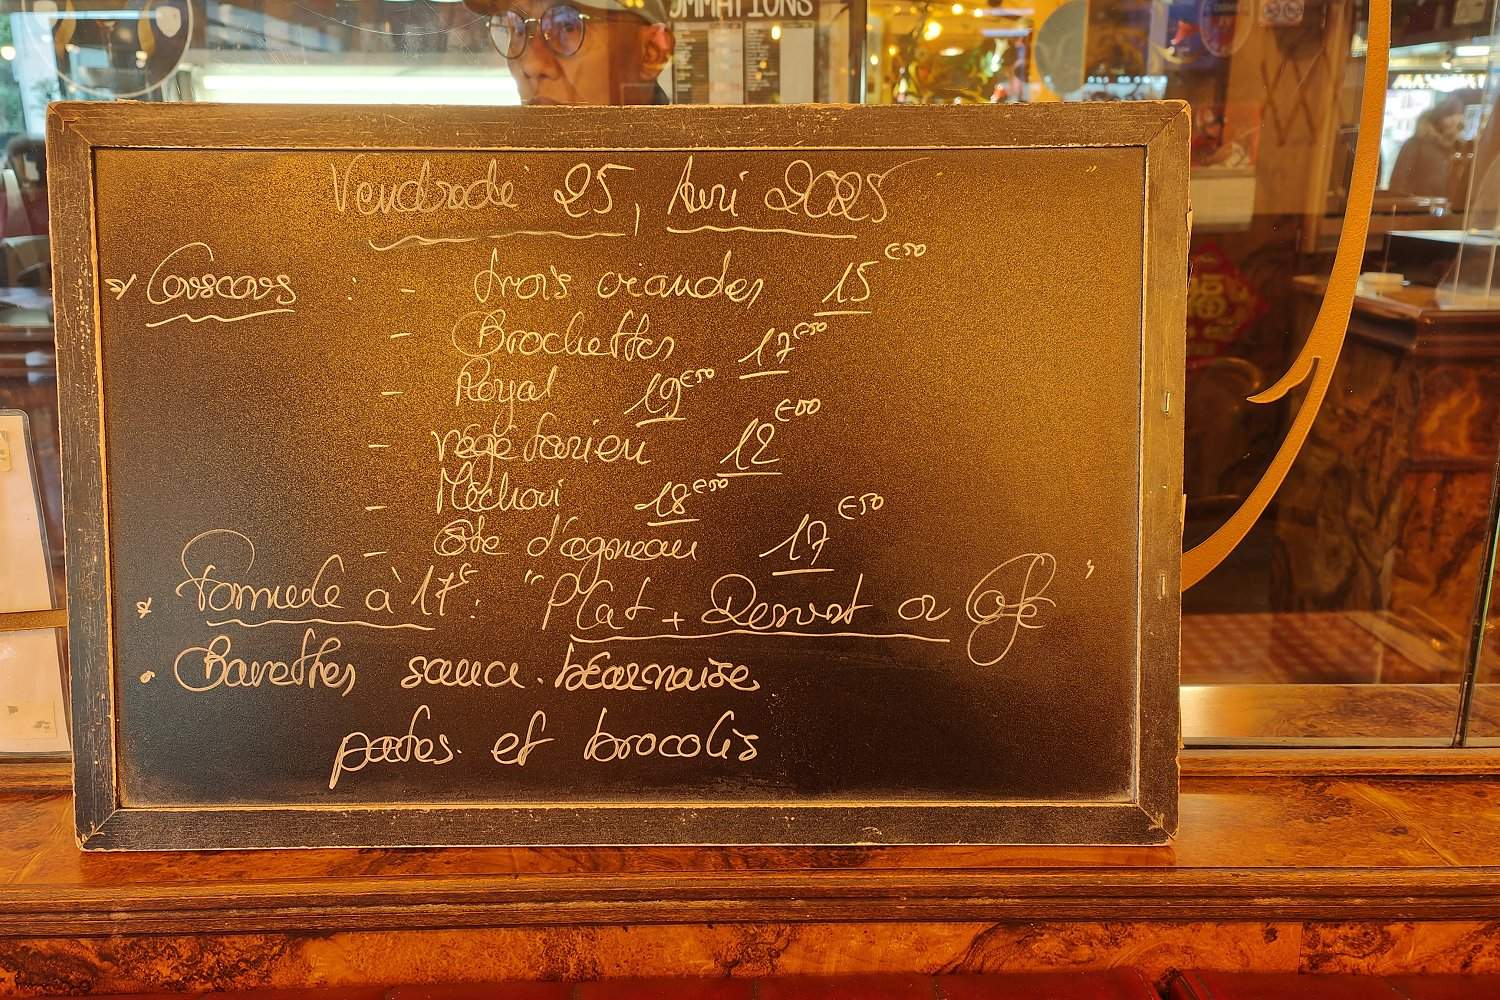 OMMATIONS
Vendredi 25, Avri 2025
* Couscous : - trois viandes 15€50
- Brochettes 17€50
- Royal 19€50
- végétarien 12€00
- Méchoui 18€50
- Côte d'agneau 17€50
* Formule à 17€ : "Plat + Dessert or Café"
• Bavettes sauce béarnaise
pates et brocolis